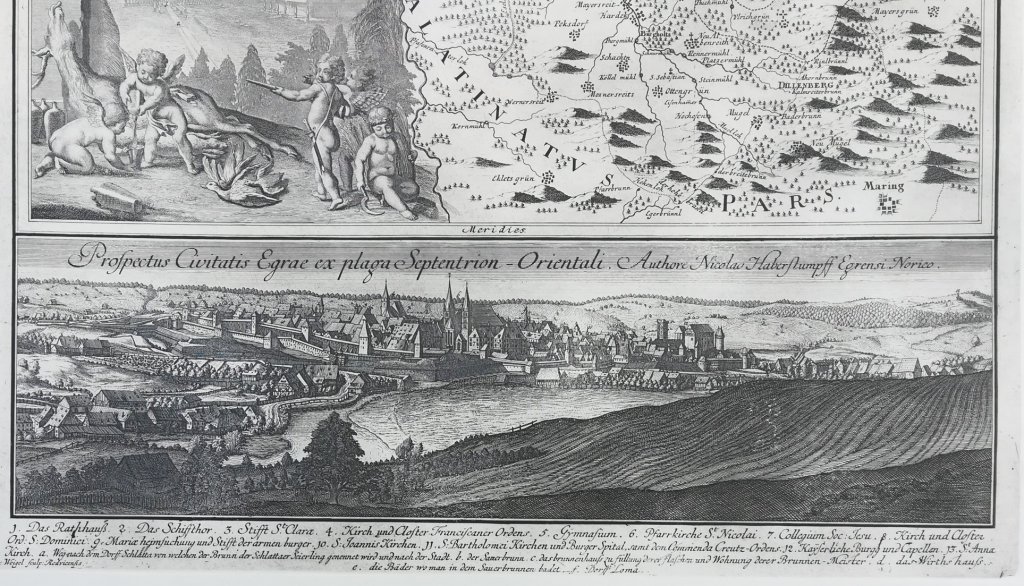 Mayersreit
Mayersgrün
Hardek
Ulrichgrün
Peksdorf
Schachtn
Platzermühl
Kinlbrünl
Kellel mühl
S. Sebastian
Steinmühl
DILLENBERG
Ottengrün
Mosnersreits
Wernersreit
Mugel
Baderbrunn
Kornmühl
Neu Mugel
PALATINATVS
PARS.
Eklets grün
Egerbrünnl
Maring
Meridies.
Prospectus Civitatis Egrae ex plaga Septentrion - Orientali. Authore Nicolao Haberstumpff Egrensi Norico.
1. Das Rathhauß. 2. Das Schifsthor. 3. Stifft St. Claræ. 4. Kirch und Closter Franciscaner Ordens. 5. Gymnasium. 6. Pfarrkirche St. Nicolai. 7. Collegium Soc: Jesu. 8. Kirch und Closter
Ord: S: Dominici. 9. Mariæ heimsuchung und Stifft der armen burger. 10. S: Joannis Kirchen. 11. S: Bartholomei Kirchen und Burger Spital, samt dem Commenda Creutz-Ordens. 12. Kayserliche Burg und Capellen. 13. S: Anna
Kirch. a. Weg nach dem Dorf Schlatta von welchen der Brunn der Schlattaer Seierling genennet wird und nach der Stadt. b. der Sauerbrunn. c. das brunnenhaus zu füllung derer flaschen und Wohnung derer Brunnen-Meister. d. das Wirthshauß.
Weigel sculp. Redvicensis. e. die Bäder wo man in dem Sauerbrunnen badet. f. Dorff Loma.